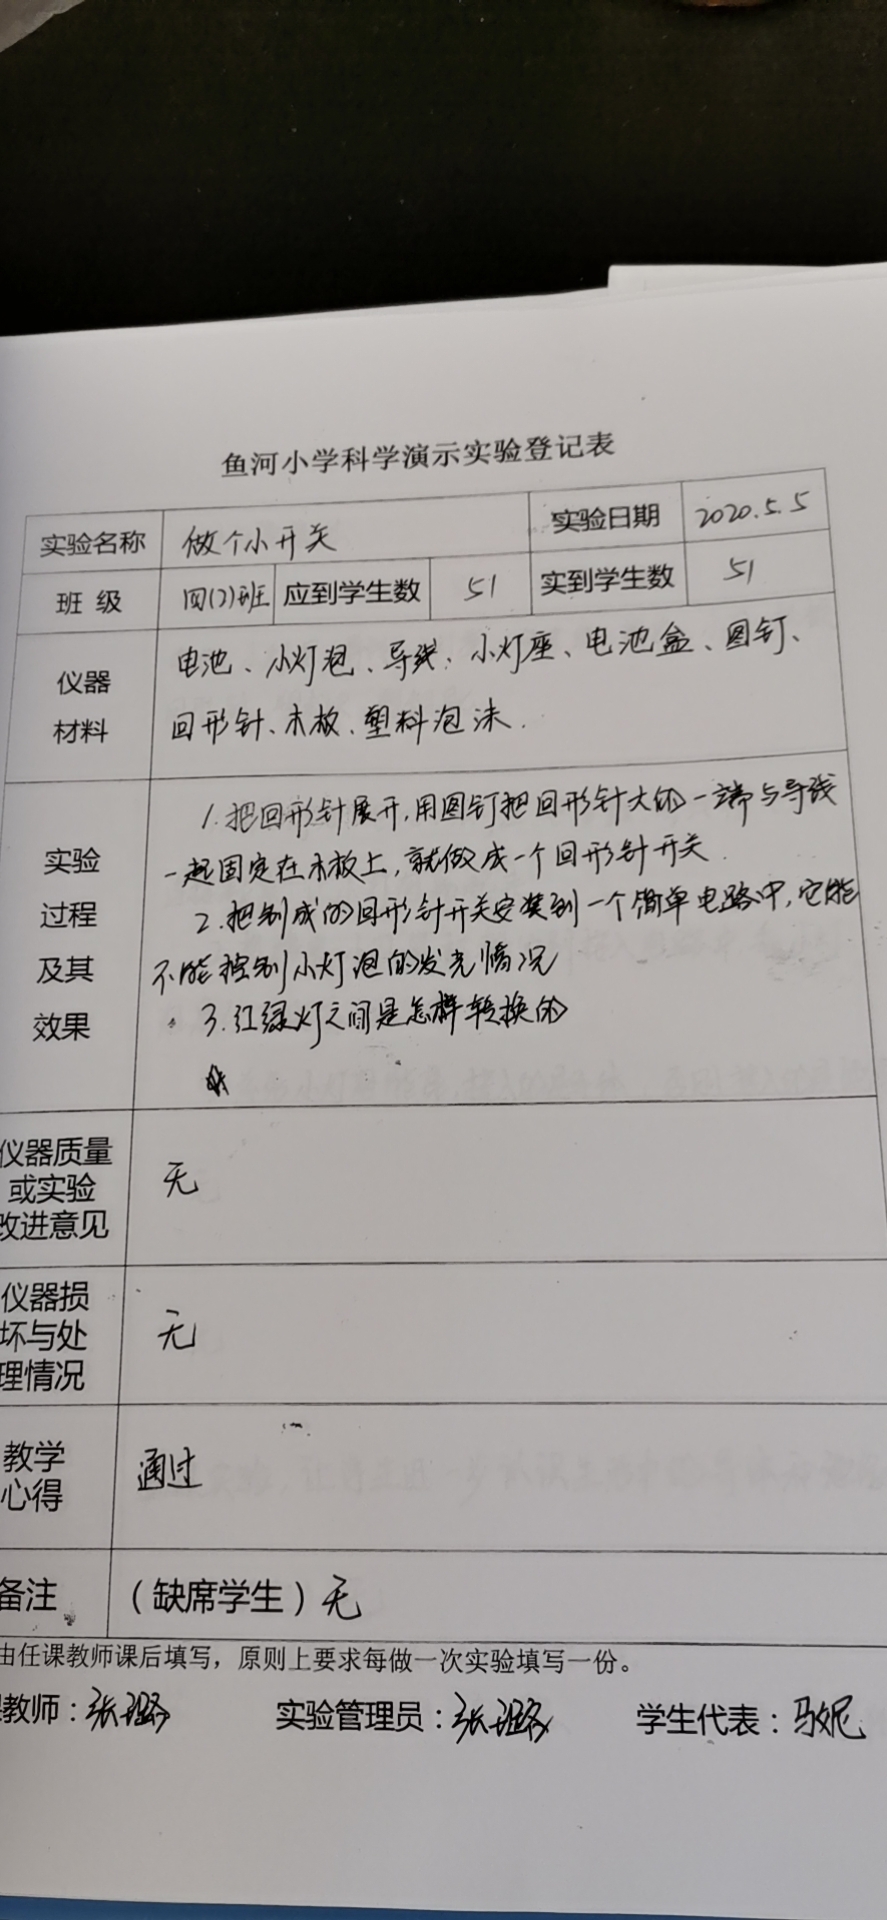 鱼河小学科学演示实验登记表
实验名称 做个小开关 实验日期 2020.5.5
班 级 四(2)班 应到学生数 51 实到学生数 51
仪器 电池、小灯泡、导线、小灯座、电池盒、图钉、
材料 回形针、木板、塑料泡沫.
1.把回形针展开,用图钉把回形针大的一端与导线
实验 一起固定在木板上,就做成一个回形针开关.
过程 2.把制成的回形针开关安装到一个简单电路中,它能
及其 不能控制小灯泡的发光情况
效果 3.红绿灯之间是怎样转换的
仪器质量
或实验 无
改进意见
仪器损
坏与处 无
理情况
教学 通过
心得
备注 (缺席学生)无
由任课教师课后填写，原则上要求每做一次实验填写一份。
课教师:张璐 实验管理员:张璐 学生代表:马妮